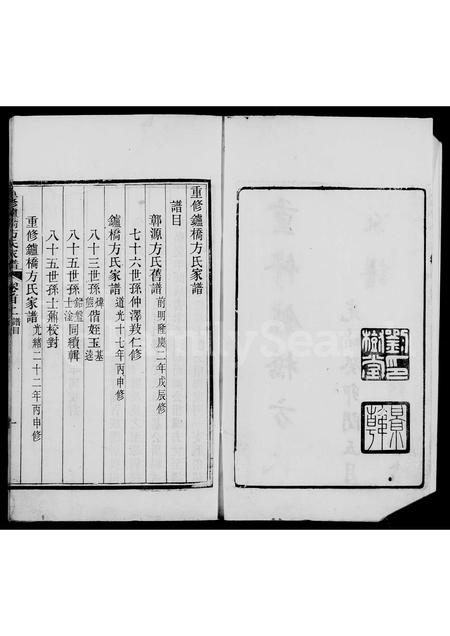 重修鑪橋方氏家譜
譜目
鄣源方氏舊譜 前明隆慶二年戊辰修
七十六世孫仲澤 仁修
鑪橋方氏家譜 道光十七年丙申修
八十三世孫煒 熊 偕姪玉基 逵
八十五世孫士 鎔鑿淦 同續輯
八十五世孫士鼐校對
重修鑪橋方氏家譜 光緒二十二年丙申修
重修鑪橋方氏家譜 卷首之一 譜目
一
劉樹堂印
景韓
FamilySearch